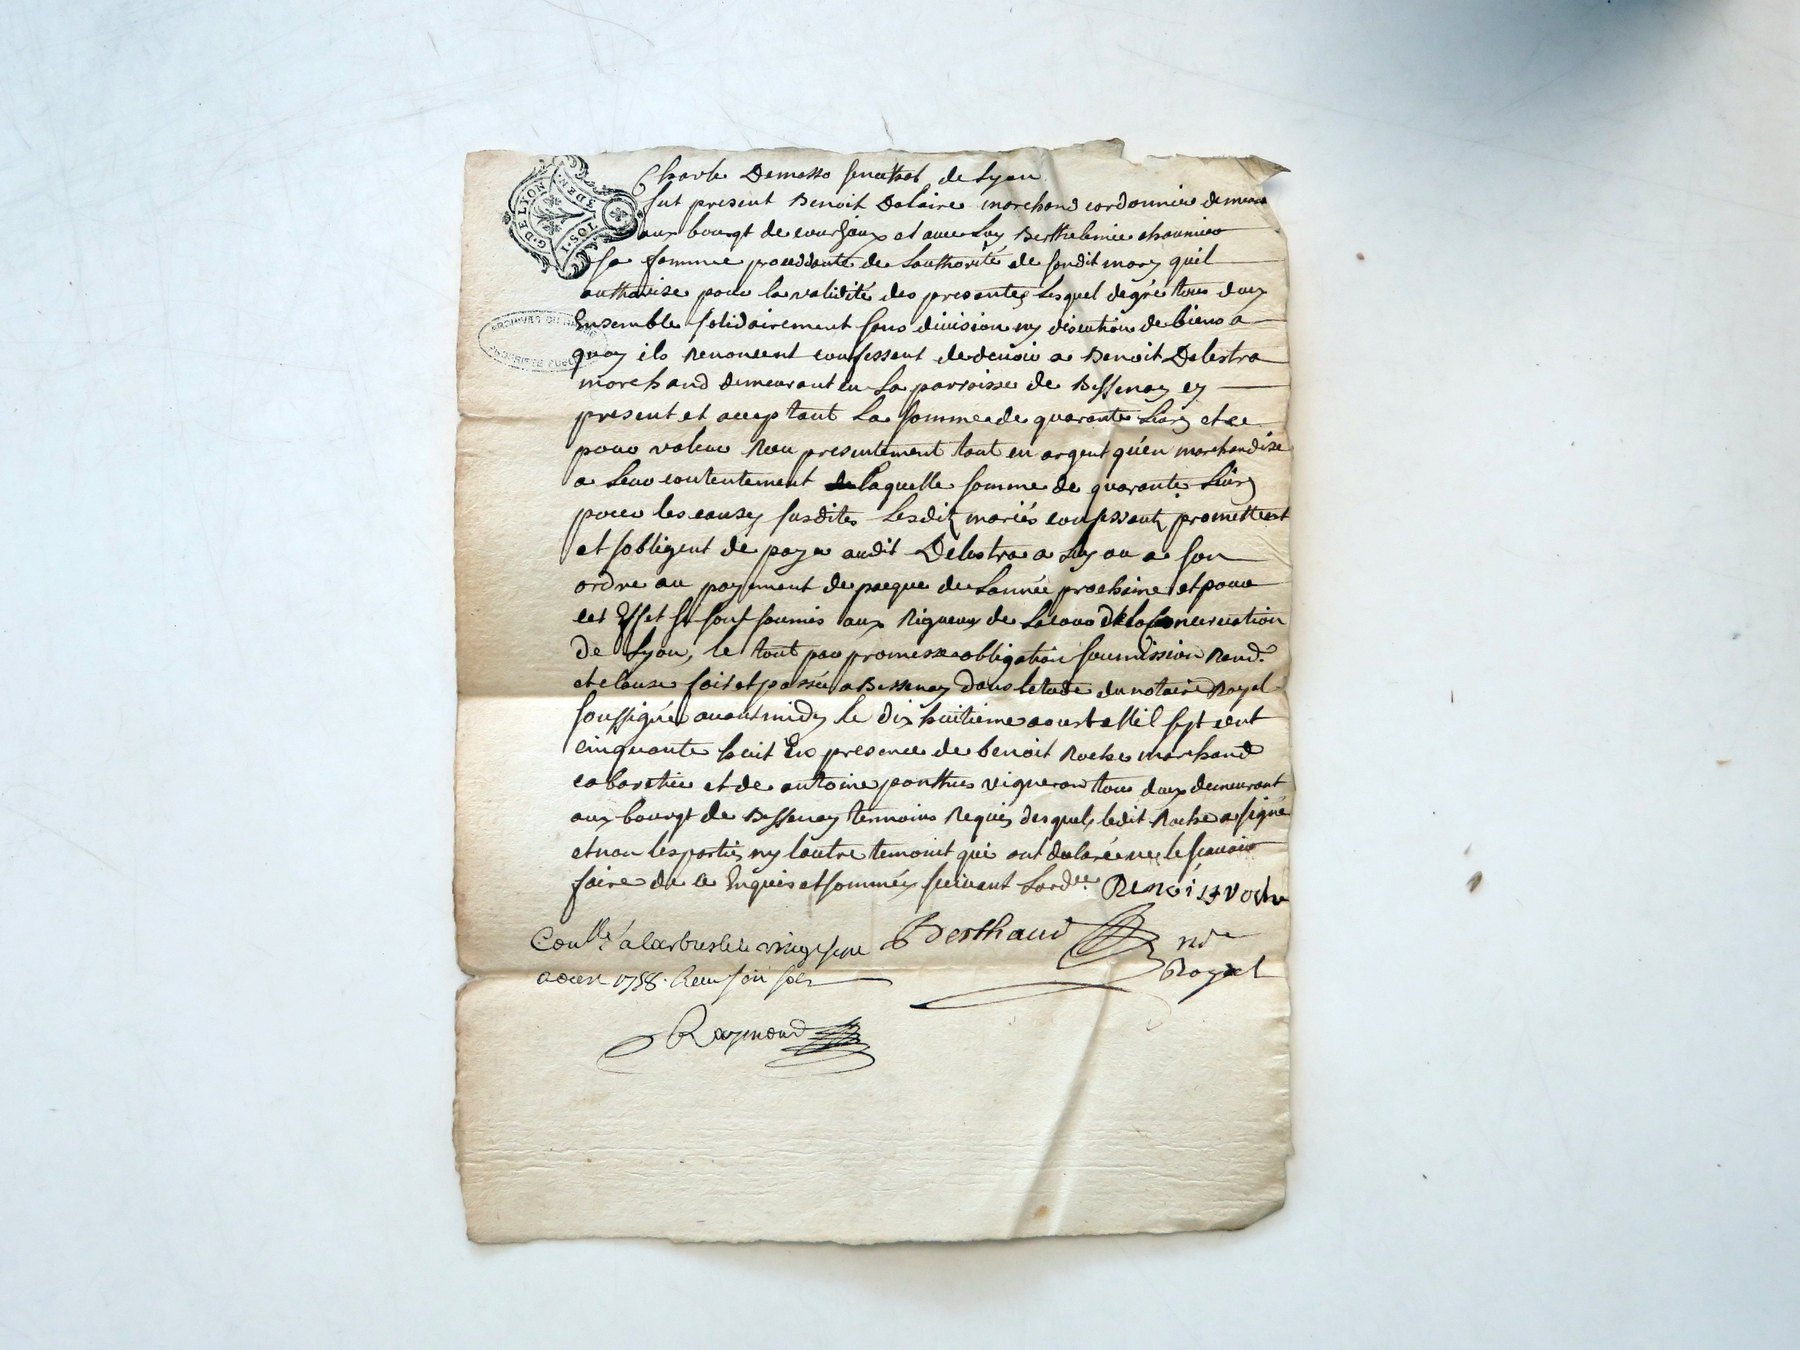 G. DE LYON
3 DEN.
1 SOL.
ARCHIVES DU RHONE
PROPRIETE PUBLIQUE
Charle Demasso senechal de Lyon
fut present Benoit Dalaire marchand cordonnier demeurant
aux bourgt de courzieux et avec Luy Berthelemie
sa femme proceddante de Lauthorité de sondit mary quil
authorise pour la validité des presentes Lesquel degré tous deux
Ensemble solidairement sans division ny discution de biens a
quoy ils Renoncent confessent de devoir a Benoit Delestra
marchand demeurant en La parroisse de Bessenay cy
present et acceptant La somme de quarante Livres et ce
pour valeur Receu presentement tant en argent qu'en marchandise
a Leur contentement laquelle somme de quarante Livres
pour les causes susdites Lesdits mariés confessants promettent
et sobligent de payer audit Delestra a Luy ou a son
ordre au payement de paque de Lannée prochaine et pour
cet Effet se sont soumis aux Rigueurs de La cour de la Conservation
de Lyon, le tout par promesse obligation soumission Rend.
et clause fait et passé a Bessenay dans letude du notaire Royal
soussigné avant midy le dix huitieme aoust Mil sept cent
cinquante huit En presence de benoit Roche marchand
cabaretier et de antoine ponthus vigneron tous deux demeurant
aux bourgt de Bessenay temoins Requis desquels ledit Roche a signé
et non les parties ny lautre temoint qui ont declaré ne le scavoir
faire de ce Enquis et sommés suivant Lord.ce Benoist Roche
Conllé a Larbresle le vingt sept Berthaud nre
aoust 1758. Receu six sols Royal
Raymond